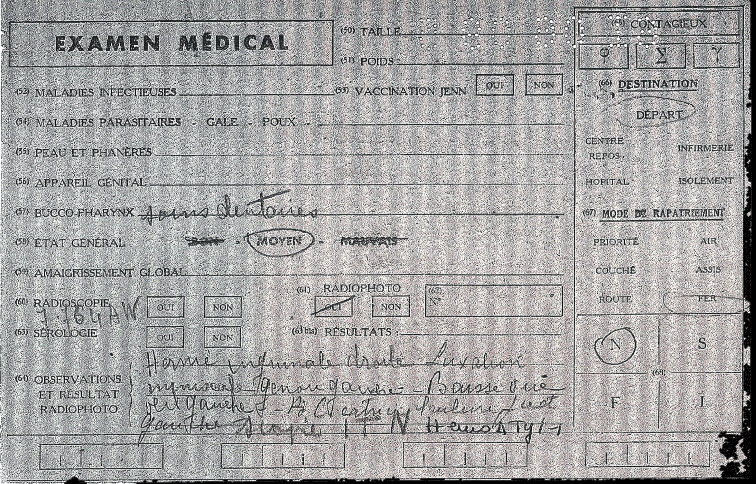 EXAMEN MÉDICAL
(50) TAILLE
(51) POIDS
(52) MALADIES INFECTIEUSES
(53) VACCINATION JENN OUI NON
(54) MALADIES PARASITAIRES - GALE - POUX -
(55) PEAU ET PHANÈRES
(56) APPAREIL GÉNITAL
(57) BUCCO-PHARYNX soins dentaires
(58) ÉTAT GÉNÉRAL BON - MOYEN - MAUVAIS
(59) AMAIGRISSEMENT GLOBAL
(60) RADIOSCOPIE OUI NON
(61) RADIOPHOTO OUI NON
(62) N°
(63) SÉROLOGIE OUI NON
(61 bis) RÉSULTATS
(64) OBSERVATIONS
ET RÉSULTAT
RADIOPHOTO
Hernie inguinale droite Luxation
genou gauche - Baisse vue
gauche
gauche
(65) CONTAGIEUX
φ Σ γ
(66) DESTINATION
DÉPART
CENTRE REPOS INFIRMERIE
HOPITAL ISOLEMENT
(67) MODE DE RAPATRIEMENT
PRIORITÉ AIR
COUCHÉ ASSIS
ROUTE FER
N S
(68)
F I